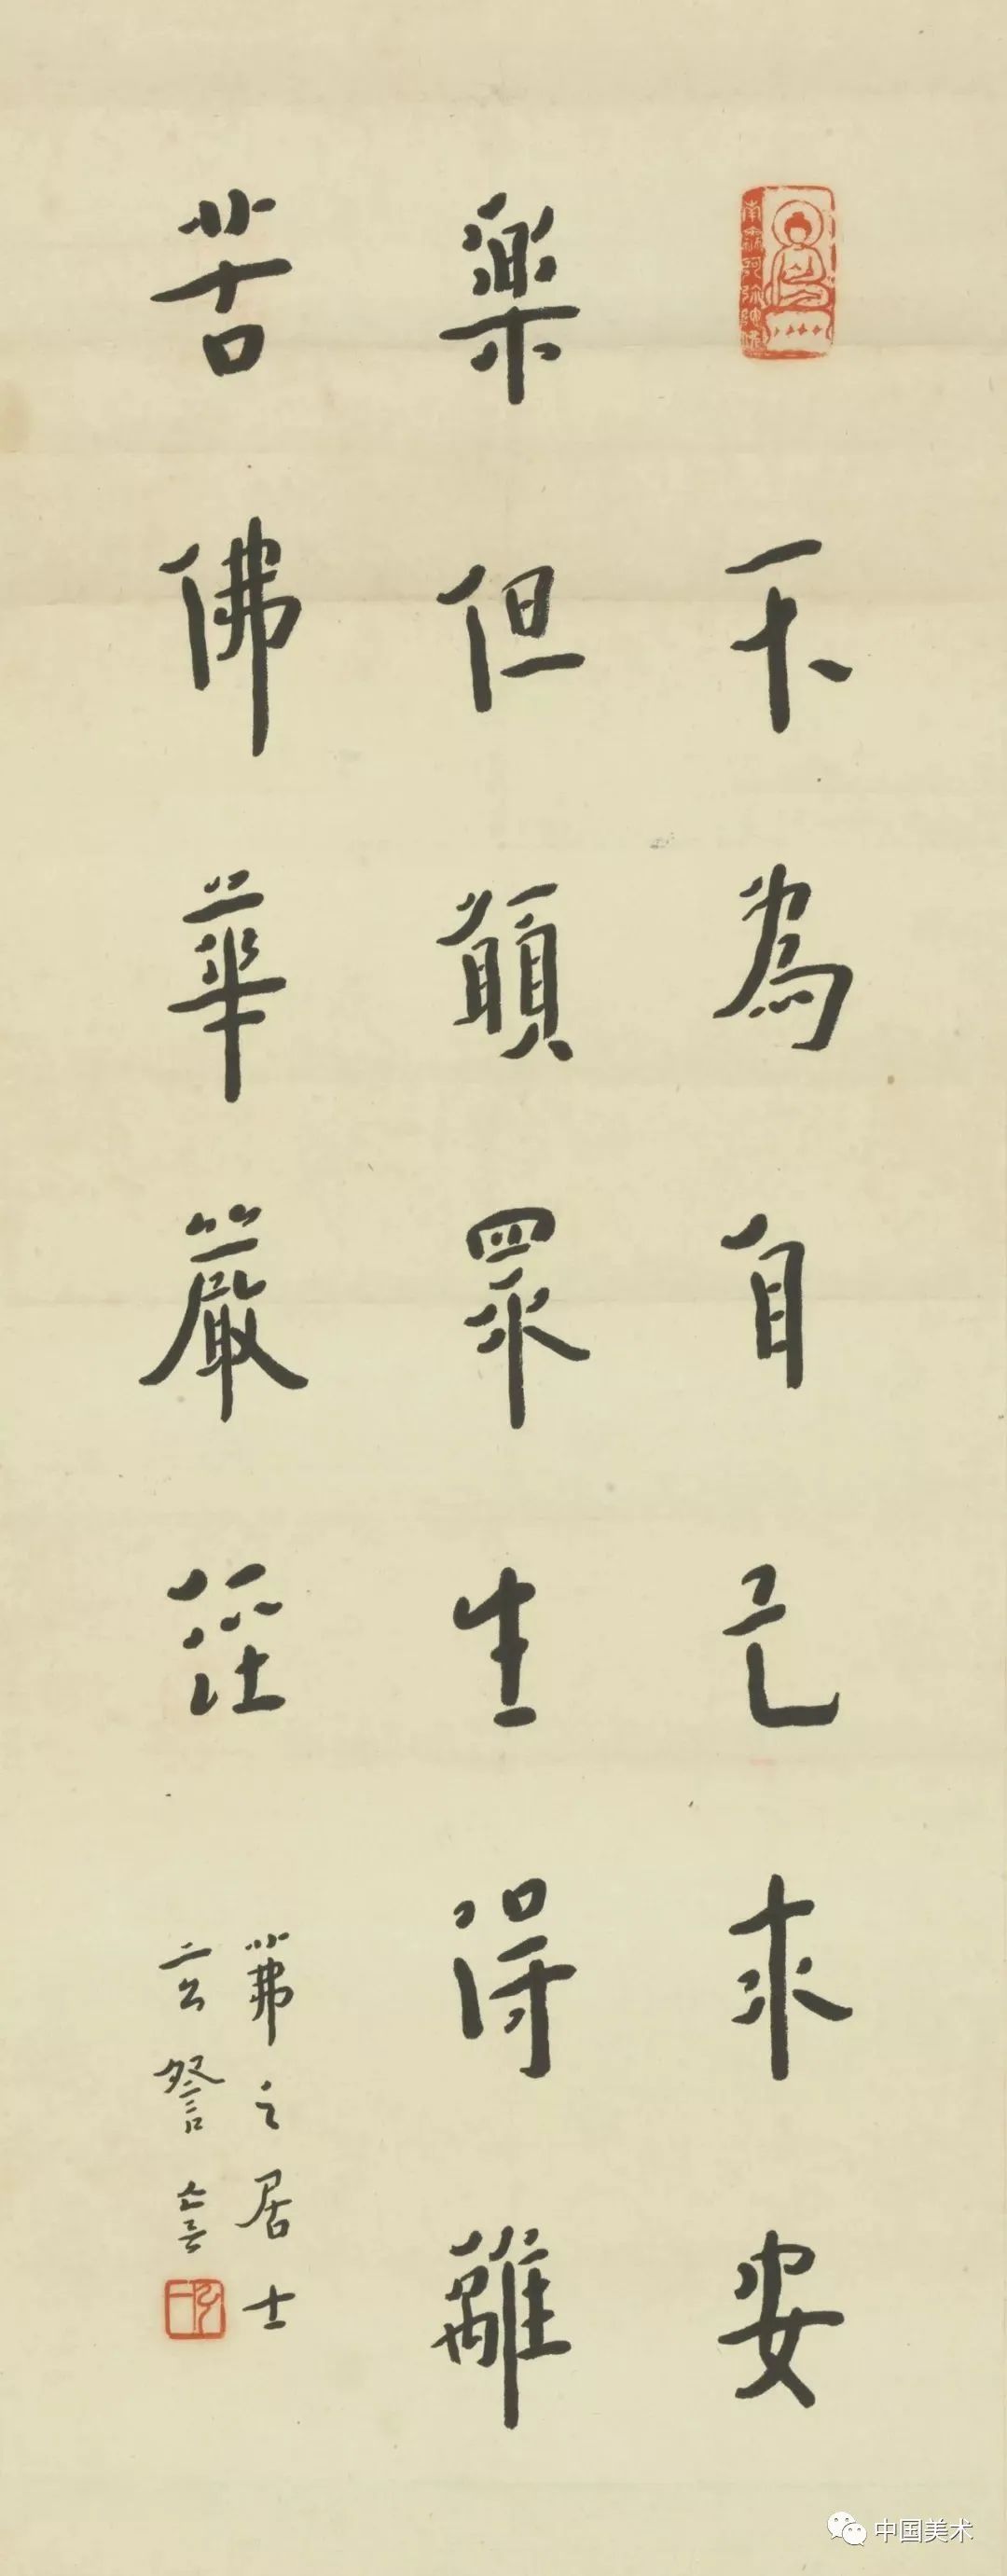 不為自己求安
樂但願眾生得離
苦佛華嚴經
茀之居士
玄誓書
南無阿彌陀佛
中国美术